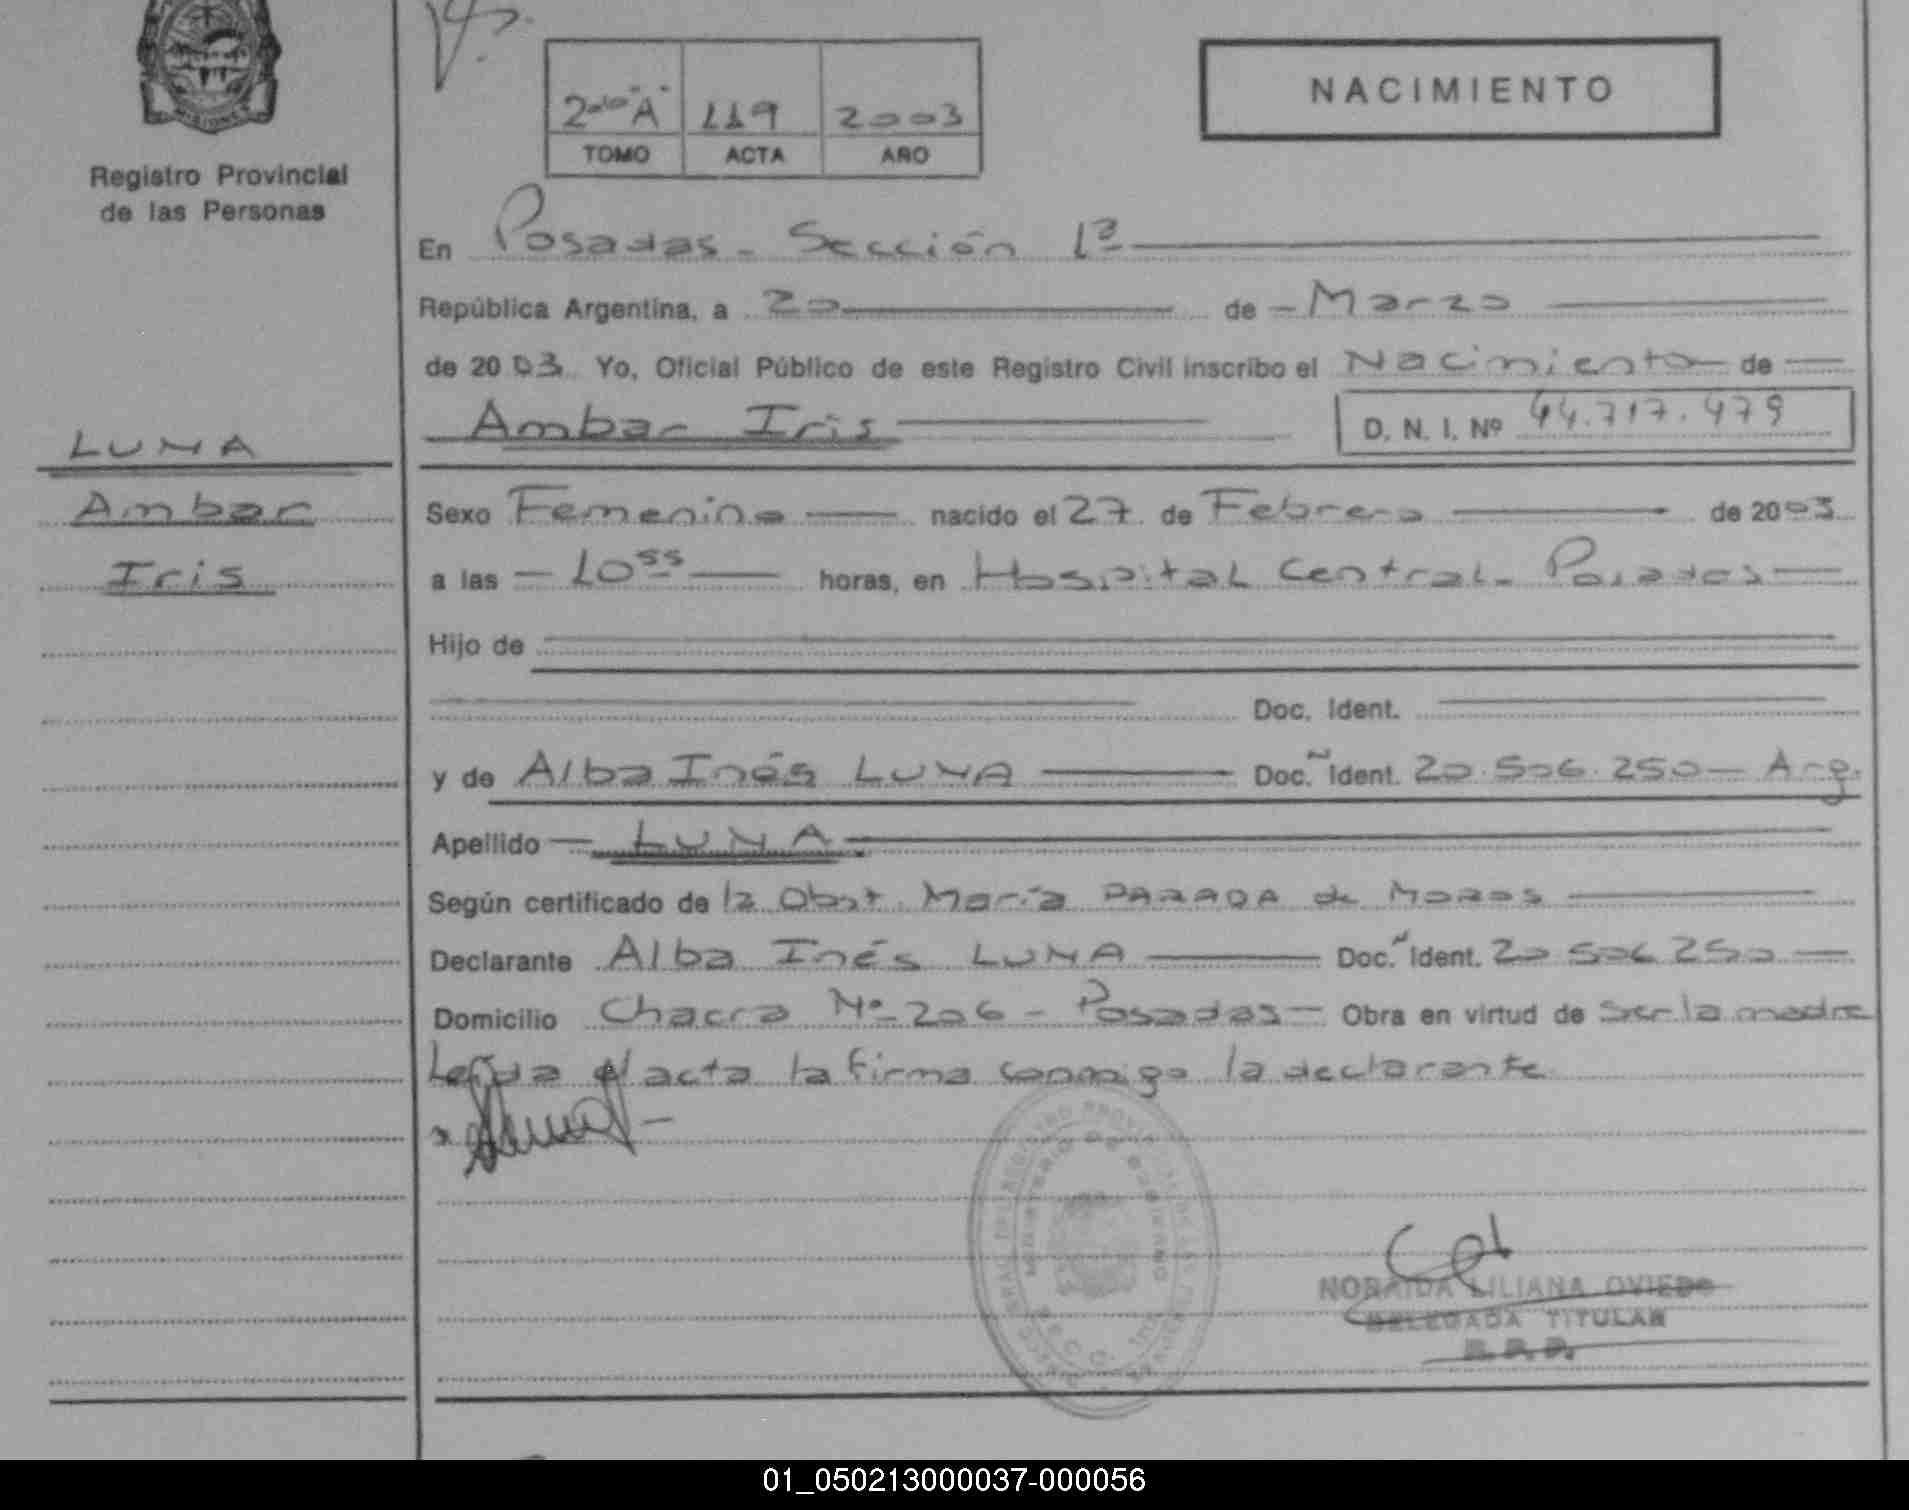 MISIONES
Registro Provincial
de las Personas
2do "A" 119 2003
TOMO ACTA AÑO
NACIMIENTO
En Posadas - Sección 1ª
República Argentina, a 20 de Marzo
de 2003 Yo, Oficial Público de este Registro Civil inscribo el Nacimiento de
Ambar Iris D. N. I. Nº 44.717.479
LUNA
Ambar
Iris
Sexo Femenino nacido el 27 de Febrero de 2003
a las 10 55 horas, en Hospital Central - Posadas
Hijo de
Doc. Ident.
y de Alba Inés LUNA Doc. Ident. 20.506.250 - Arg.
Apellido LUNA
Según certificado de la Obst. María PARADA de
Declarante Alba Inés LUNA Doc. Ident. 20 506 250
Domicilio Chacra Nº 206 - Posadas - Obra en virtud de ser la madre
Leída el acta la firma conmigo la declarante
NORAIDA LILIANA OVIEDO
DELEGADA TITULAR
R.P.P.
01_050213000037-000056